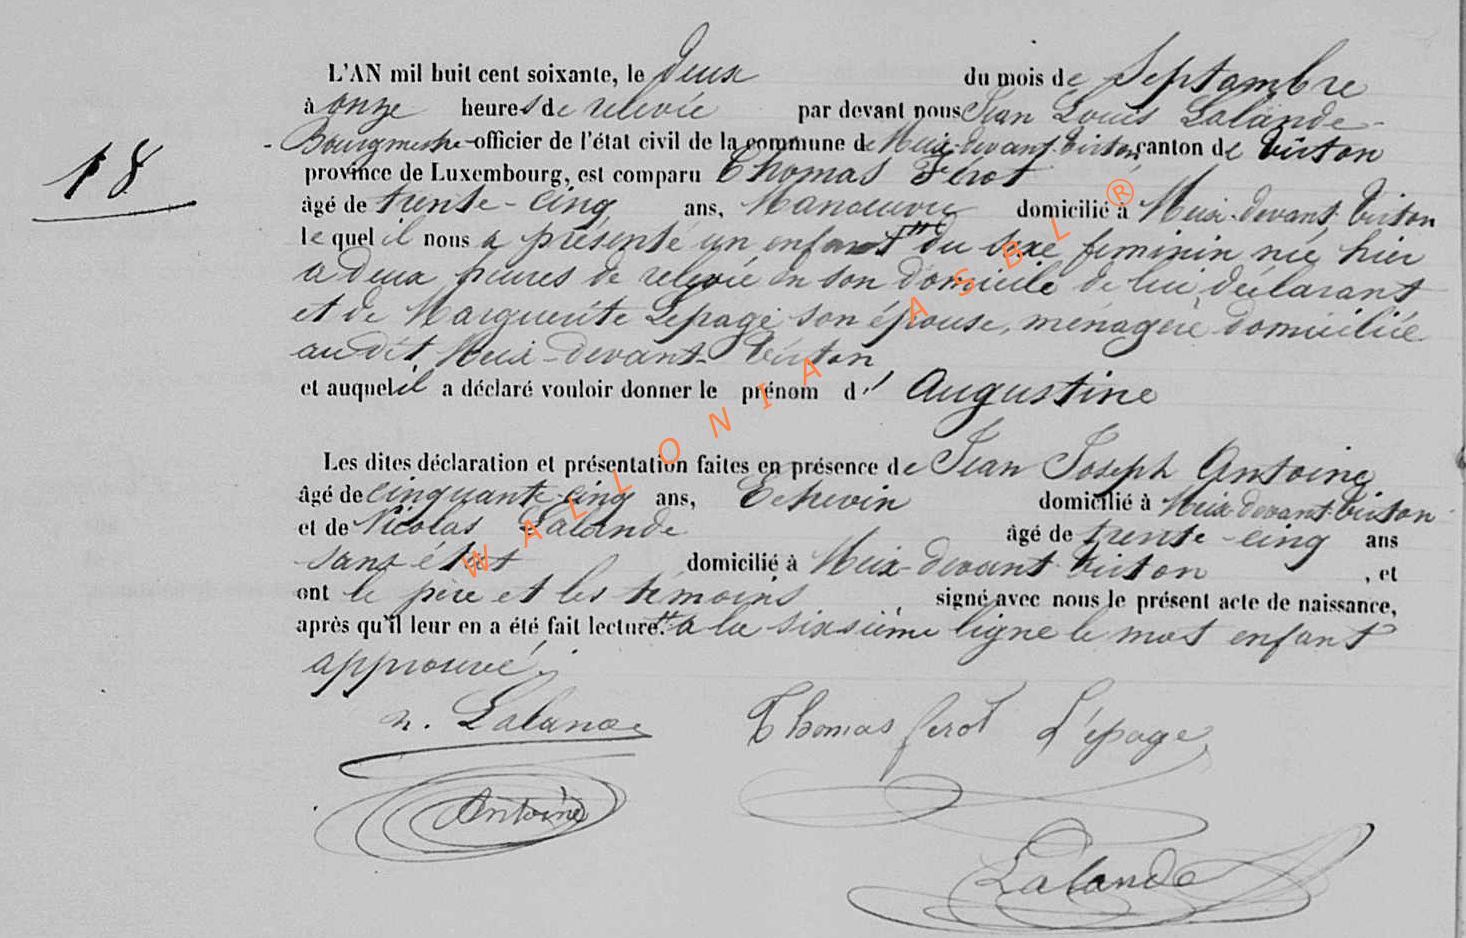 L'AN mil huit cent soixante, le deux du mois de Septambre
à onze heures de relevée par devant nous Jean Louis Lalande
18
Bourgmestre officier de l'état civil de la commune de Meix-devant-Virton, canton de Virton
province de Luxembourg, est comparu Thomas Férot
âgé de trente-cinq ans, Manœuvre domicilié à Meix-devant-Virton
lequel il nous a présenté un enfant du sexe feminin née hier
a deux heures de relevée en son domicile de lui déclarant
et de Marguerite Lepage son épouse, ménagère domiciliée
audit Meix-devant-Virton
et auquel il a déclaré vouloir donner le prénom d' Augustine
Les dites déclaration et présentation faites en présence de Jean Joseph Antoine
âgé de cinquante-cinq ans, Echevin domicilié à Meix-devant-Virton
et de Nicolas Lalande âgé de trente-cinq ans
sans état domicilié à Meix-devant-Virton , et
ont le père et les témoins signé avec nous le présent acte de naissance,
après qu'il leur en a été fait lecture. a la sixsième ligne le mot enfant
approuvé.
n. Lalande Thomas ferot L'épage
Antoine
Lalande
WALLONIA ASBL ®